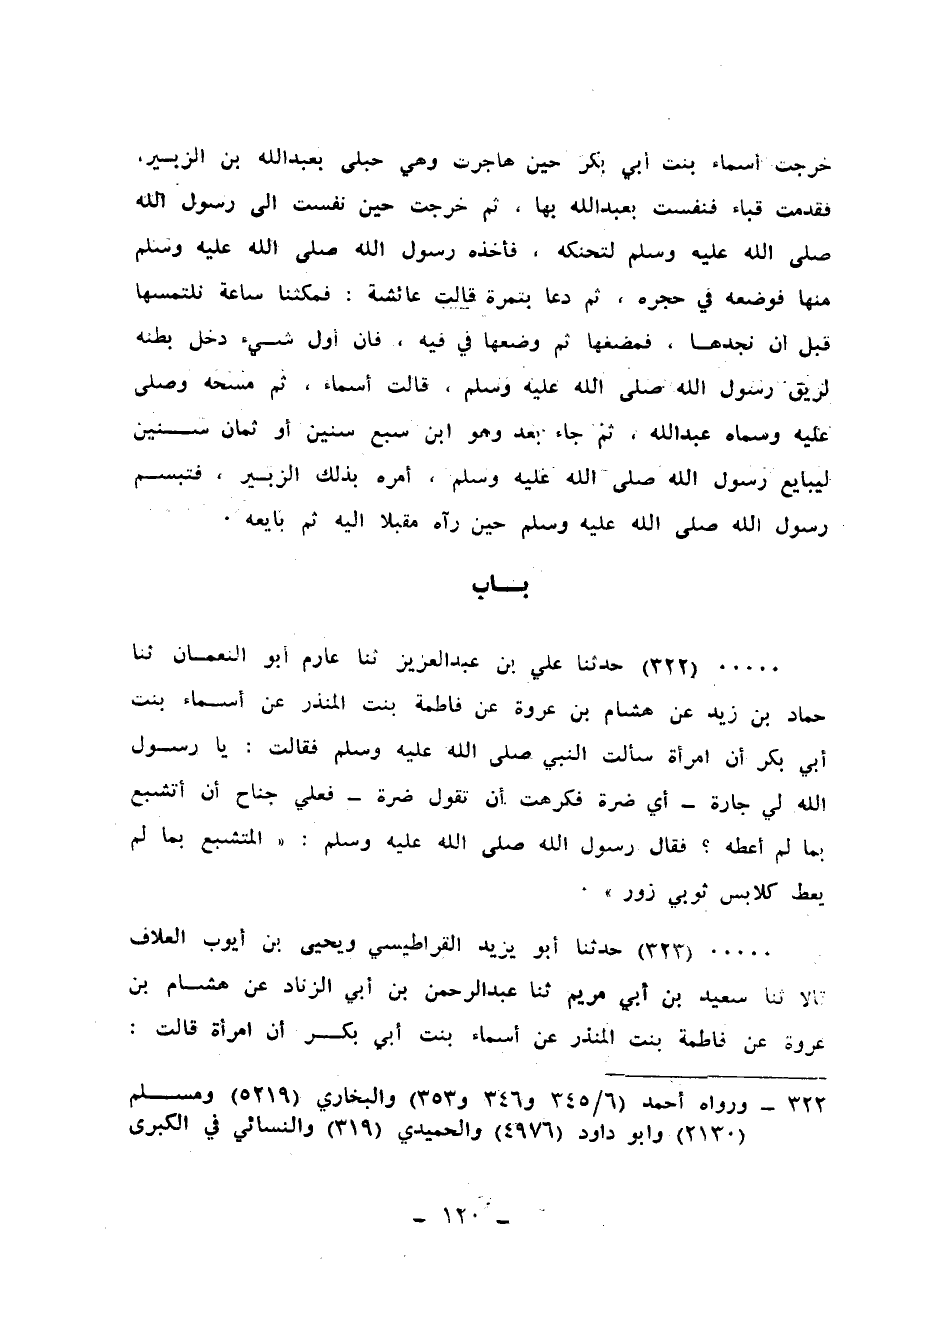 خرجت أسماء بنت أبي بكر حين هاجرت وهي حبلى بعبدالله بن الزبير،
فقدمت قباء فنفست بعبدالله بها ، ثم خرجت حين نفست الى رسول الله
صلى الله عليه وسلم لتحنكه ، فأخذه رسول الله صلى الله عليه وسلم
منها فوضعه في حجره ، ثم دعا بتمرة قالت عائشة : فمكثنا ساعة نلتمسها
قبل ان نجدها ، فمضغها ثم وضعها في فيه ، فان أول شيء دخل بطنه
لريق رسول الله صلى الله عليه وسلم ، قالت أسماء ، ثم مسحه وصلى
عليه وسماه عبدالله ، ثم جاء بعد وهو ابن سبع سنين أو ثمان سنين
ليبايع رسول الله صلى الله عليه وسلم ، أمره بذلك الزبير ، فتبسم
رسول الله صلى الله عليه وسلم حين رآه مقبلا اليه ثم بايعه ٠
باب
٠٠٠٠٠ (٣٢٢) حدثنا علي بن عبدالعزيز ثنا عارم أبو النعمان ثنا
حماد بن زيد عن هشام بن عروة عن فاطمة بنت المنذر عن أسماء بنت
أبي بكر أن امرأة سألت النبي صلى الله عليه وسلم فقالت : يا رسول
الله لي جارة – أي ضرة فكرهت أن تقول ضرة – فعلي جناح أن أتشبع
بما لم أعطه ؟ فقال رسول الله صلى الله عليه وسلم : « المتشبع بما لم
يعط كلابس ثوبي زور » ٠
٠٠٠٠٠ (٣٢٣) حدثنا أبو يزيد القراطيسي ويحيى بن أيوب العلاف
قالا ثنا سعيد بن أبي مريم ثنا عبدالرحمن بن أبي الزناد عن هشام بن
عروة عن فاطمة بنت المنذر عن أسماء بنت أبي بكر أن امرأة قالت :
٣٢٢ – ورواه أحمد (٣٤٥/٦ و٣٤٦ و٣٥٣) والبخاري (٥٢١٩) ومسلم
(٢١٣٠) وابو داود (٤٩٧٦) والحميدي (٣١٩) والنسائي في الكبرى
– ١٢٠ –